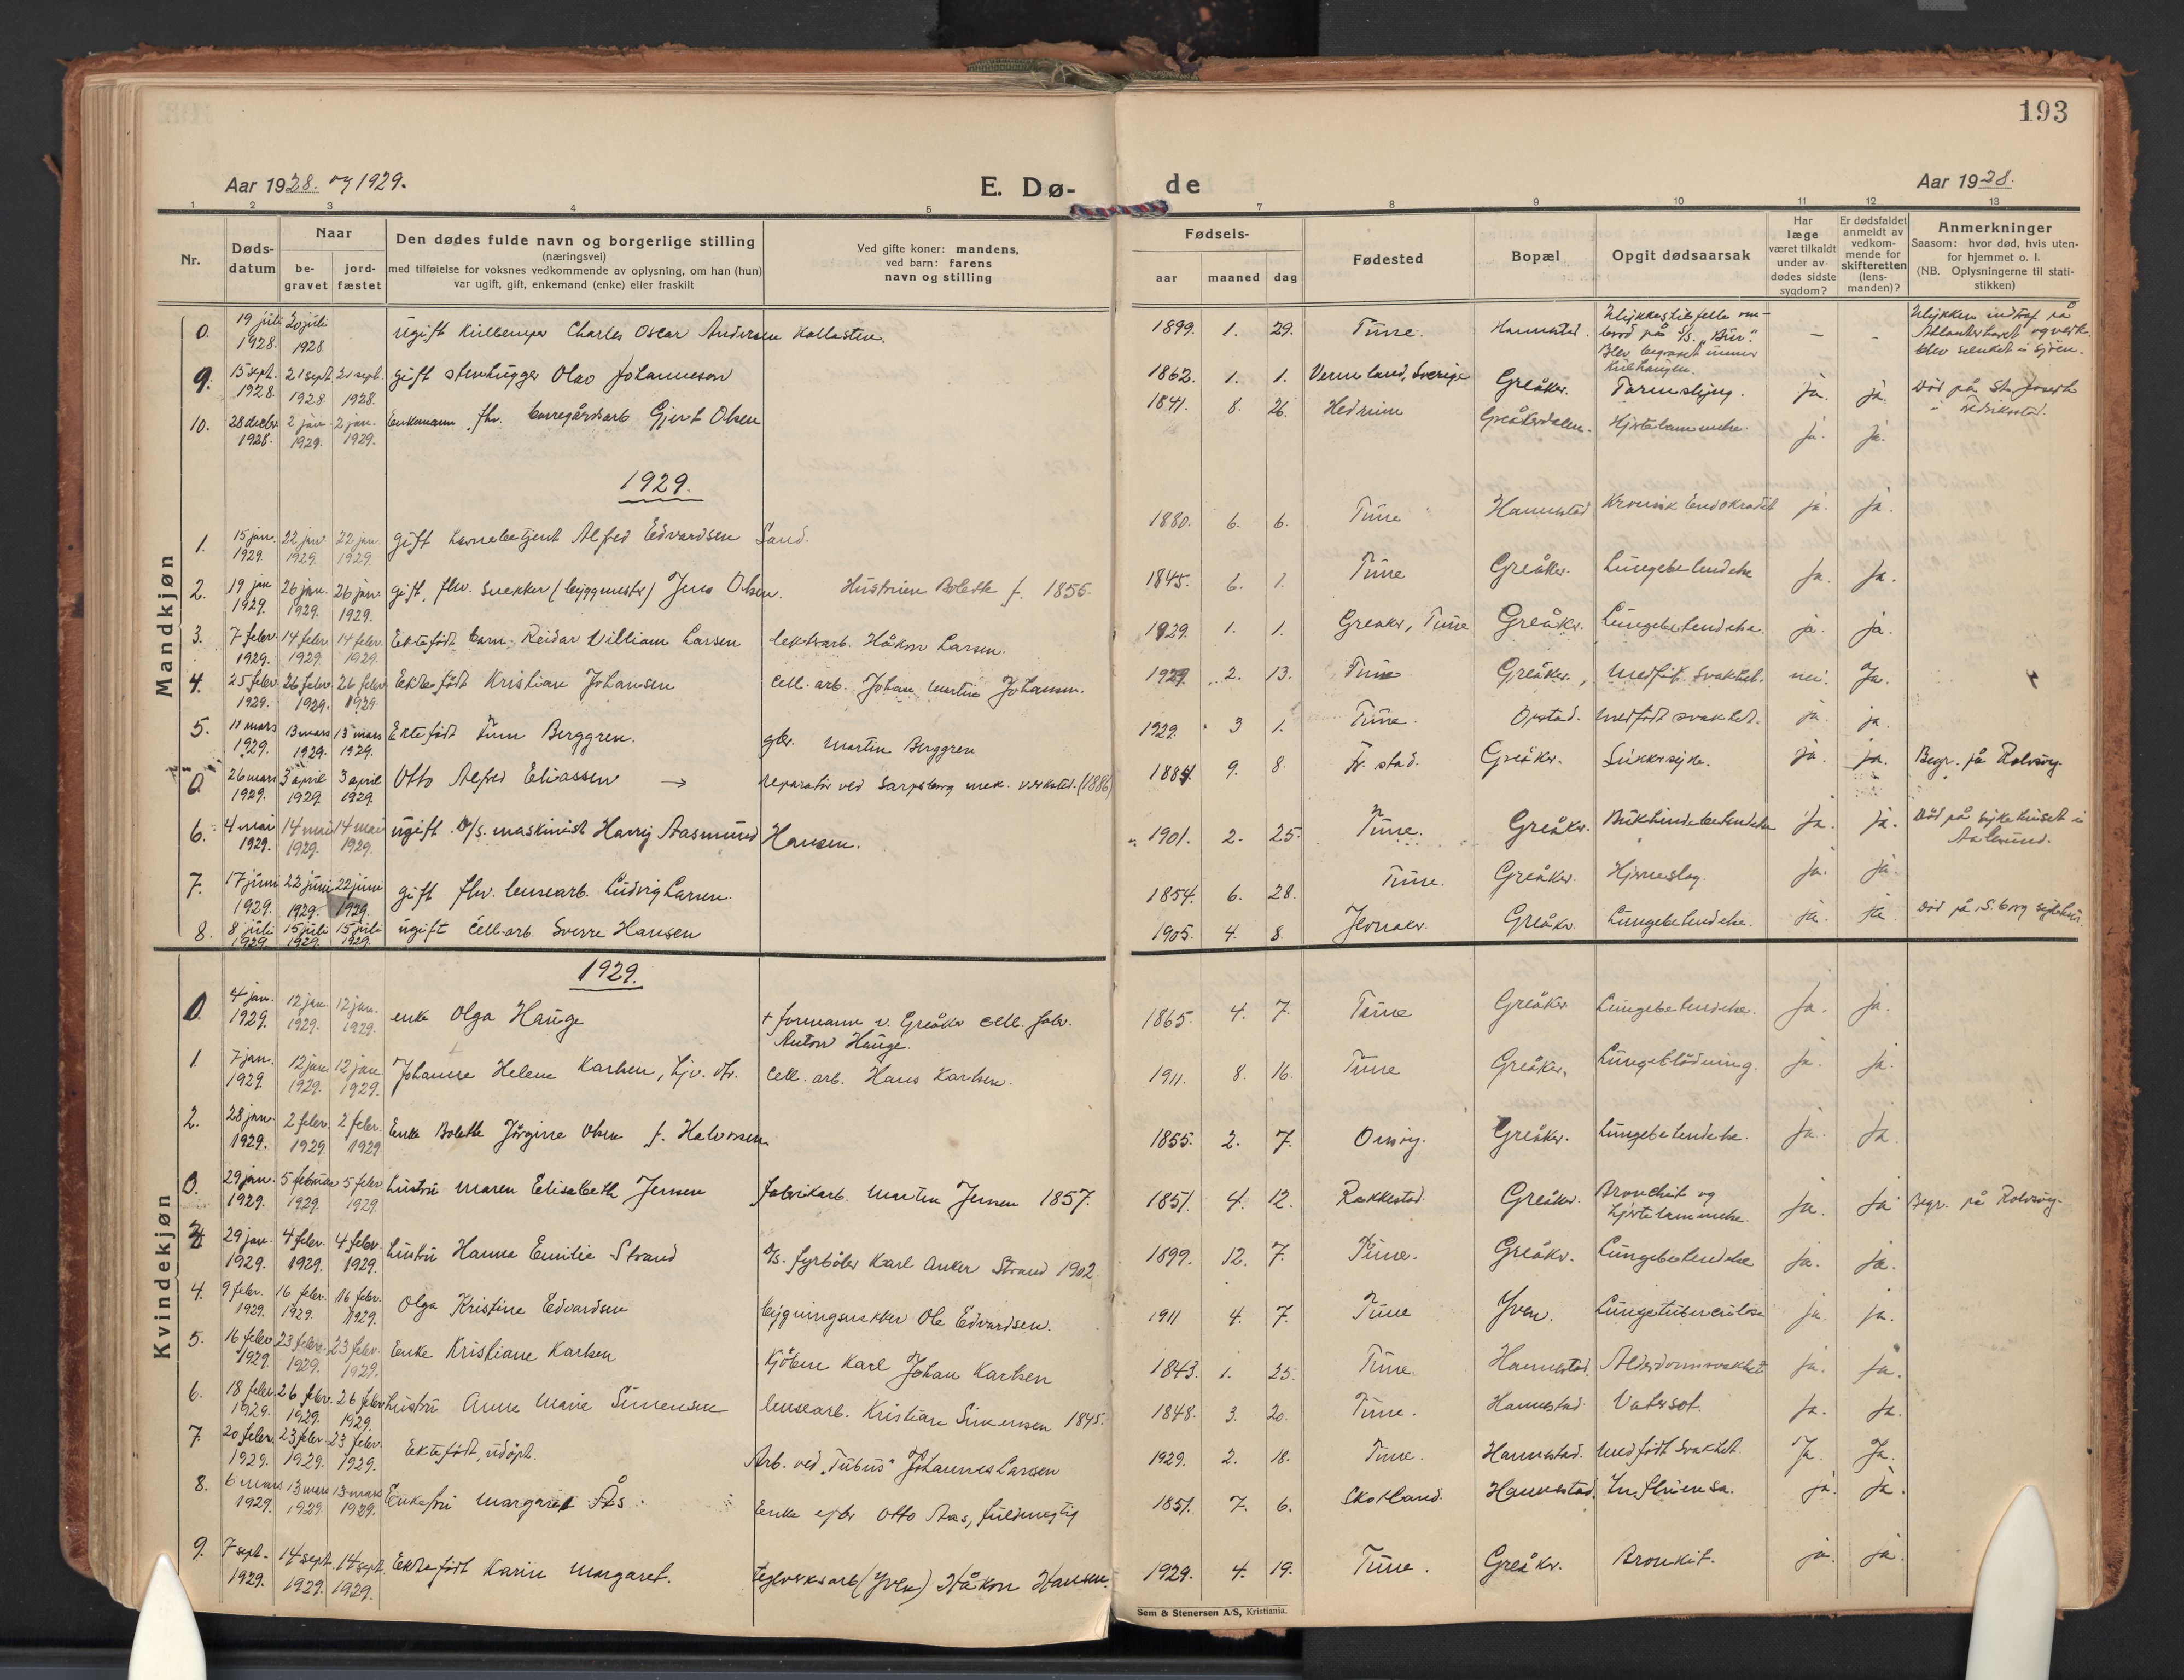 193
Aar 1928. og 1929.
E. Dø-
de
Aar 1928.
1 2 3 4 5 7 8 9 10 11 12 13
Nr.
Døds-
datum
Naar
be-
gravet
jord-
fæstet
Den dødes fulde navn og borgerlige stilling
(næringsvei)
med tilføielse for voksnes vedkommende av oplysning, om han (hun)
var ugift, gift, enkemand (enke) eller fraskilt
Ved gifte koner: mandens,
ved barn: farens
navn og stilling
Fødsels-
aar maaned dag
Fødested
Bopæl
Opgit dødsaarsak
Har
læge
været tilkaldt
under av-
dødes sidste
sygdom?
Er dødsfaldet
anmeldt av
vedkom-
mende for
skifteretten
(lens-
manden)?
Anmerkninger
Saasom: hvor død, hvis uten-
for hjemmet o. l.
(NB. Oplysningerne til stati-
stikken)
Mandkjøn
0. 19 juli 1928. 20 juli 1928 ugift Charles Oscar Andersen Kallasten. 1899. 1. 29. Tune. Hannestad. - -
9. 15 sept. 1928. 21 sept 1928 21 sept. 1928. gift stenhugger Olav Johanneson 1862. 1. 1. Vermland, Sverige Greåker. Tarmslyng. ja. ja. Död på St. Josephs i Fredrikstad.
10. 28 decbr. 1928. 2 jan. 1929. 2 jan. 1929. Enkemann, fhv. Gjert Olsen 1841. 8. 26. Hedrum Greåkerdalen. Hjertelammelse. ja. ja.
1929.
1. 15 jan. 1929. 22 jan 1929. 22 jan 1929. gift Alfred Edvardsen Sand. 1880. 6. 6. Tune Hannestad Kronisk ja. ja.
2. 19 jan 1929. 26 jan. 1929. 26 jan. 1929. gift, fhv. snekker (byggmester) Jens Olsen. Hustruen Bolette f. 1855. 1845. 6. 1. Tune Greåker. Lungebetendelse ja. ja.
3. 7 febr. 1929. 14 febr. 1929. 14 febr. 1929. Ektefödt barn. Reidar William Larsen Håkon Larsen. 1929. 1. 1. Greaker, Tune Greåker. Lungebetendelse. ja. ja.
4. 25 febr. 1929. 26 febr. 1929. 26 febr. 1929. Ektefödt Kristian Johansen Cell. arb. Johan Martin Johansen. 1929. 2. 13. Tune Greåker. Medfödt svakhet. nei. Ja.
5. 11 mars 1929. 13 mars 1929. 13 mars 1929. Ektefödt Berggren. gbr. Martin Berggren 1929. 3 1. Tune. Opstad. Medfödt svakhet. ja. ja.
0. 26 mars 1929. 3 april 1929. 3 april 1929. Otto Alfred Eliassen → reparatör ved Sarpsborg mek. verksted. (1886) 1884. 9. 8. Fr. stad. Greåker. Sukkersyke. ja. ja. Begr. på Rolvsöy.
6. 4 mai 1929. 14 mai 1929. 14 mai 1929. ugift. D/s. maskinist Harry Aasmund Hansen. 1901. 2. 25. Tune. Greåker. Bukhindebetendelse ja. ja. Död på sykehuset i Aalesund.
7. 17 juni 1929. 22 juni 1929. 22 juni 1929. gift fhv. lensearb. Ludvig Larsen. 1854. 6. 28. Tune. Greåker. Hjerneslag. ja. ja.
8. 8 juli 1929 15 juli 1929. 15 juli 1929. ugift Cell.arb. Sverre Hansen 1905. 4. 8. Jevnaker. Greåker Lungebetendelse. ja. ja. Död på S.borg sykehus.
Kvindekjøn
1929.
0. 4 jan. 1929. 12 jan. 1929. 12 jan. 1929. enke Olga Hauge + formann v. Greåker Cell. fabr. Anton Hauge. 1865. 4. 7. Tune Greåker Lungebetendelse. ja. ja.
1. 7 jan. 1929. 12 jan 1929. 12 jan 1929. Johanne Helene Karlsen, hjv. dtr. Cell. arb. Hans Karlsen. 1911. 8. 16. Tune Greåker. Lungeblödning. ja. ja.
2. 28 jan. 1929. 2 febr. 1929 2 febr. 1929 Enke Bolette Jörgine Olsen f. Halvorsen. 1855. 2. 7. Onsöy. Greåker. Lungebetendelse. ja. ja.
0. 29 jan. 1929. 5 februar 1929. 5 febr. 1929 hustru Maren Elisabeth Jensen fabrikarb. Martin Jensen 1857. 1851. 4. 12. Rakkestad. Greåker. Bronchit og hjertelammelse. ja. ja Begr. på Rolvsöy.
3 29 jan. 1929. 4 febr. 1929. 4 febr. 1929. hustru Hanna Emilie Strand D/s. fyrböter Karl Anker Strand 1902. 1899. 12. 7. Tune. Greåker. Lungebetendelse ja. ja.
4. 9 febr. 1929. 16 febr. 1929. 16 febr. 1929. Olga Kristine Edvardsen bygningsnekker Ole Edvardsen. 1911 4. 7. Tune Yven. Lungetuberculose ja. ja.
5. 16 febr 1929. 23 febr. 1929. 23 febr. 1929. Enke Kristiane Karlsen Karl Johan Karlsen 1843. 1. 25. Tune. Hannestad. Alderdomssvakhet ja. ja.
6. 18 febr. 1929. 26 febr. 1929. 26 febr. 1929. hustru Anne Marie Simensen lensearb. Kristian Simensen 1845. 1848. 3. 20. Tune. Hannestad. Vatersot. ja. ja.
7. 20 febr. 1929. 23 febr. 1929. 23 febr. 1929. Ektefödt, udöpt. Arb. ved "Tubus" Johannes Larsen 1929. 2. 18. Tune. Hannestad. Medfödt svakhet. Ja. Ja.
8. 6 mars 1929. 13 mars 1929 13 mars 1929. Enkefru Margaret Ås. Enke efter Otto Aas, fuldmegtig 1851. 7. 6. Skotland. Hannestad. Influensa. ja. ja.
9. 7 sept. 1929. 14 sept. 1929. 14 sept. 1929. Ektefödt Karin Margaret. teglverksarb (Yven) Håkon Hansen. 1929. 4. 19. Tune. Greåker. Bronkit. ja. ja.
Sem & Stenersen A/S, Kristiania.